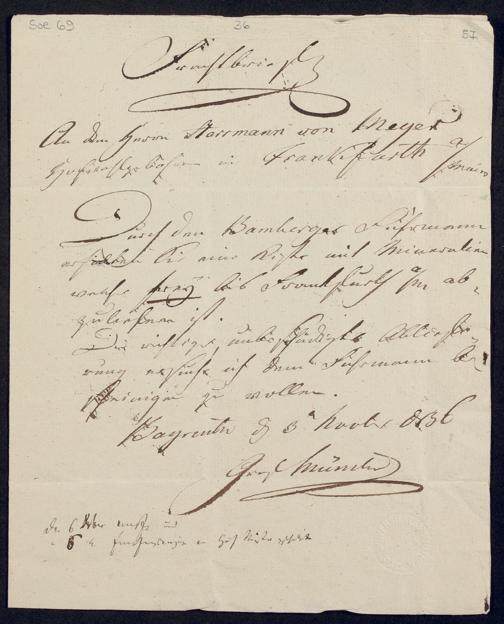 Soe 69
36
57
Frachtbrief
An den Herrn Herrmann von Meyer
Hochwohlgebohren in Frankfurth a/Main
Durch den Bamberger Fuhrmann
erhalten Sie eine Kiste mit Mineralien
welche frey bis Frankfurth a/m ab-
zuliefern ist.
Die richtige unbeschädigte Abliefe-
rung ersuche ich dem Fuhrmann be-
scheinigen zu wollen.
Bayreuth d 3 Novbr 1836
Graf Münster